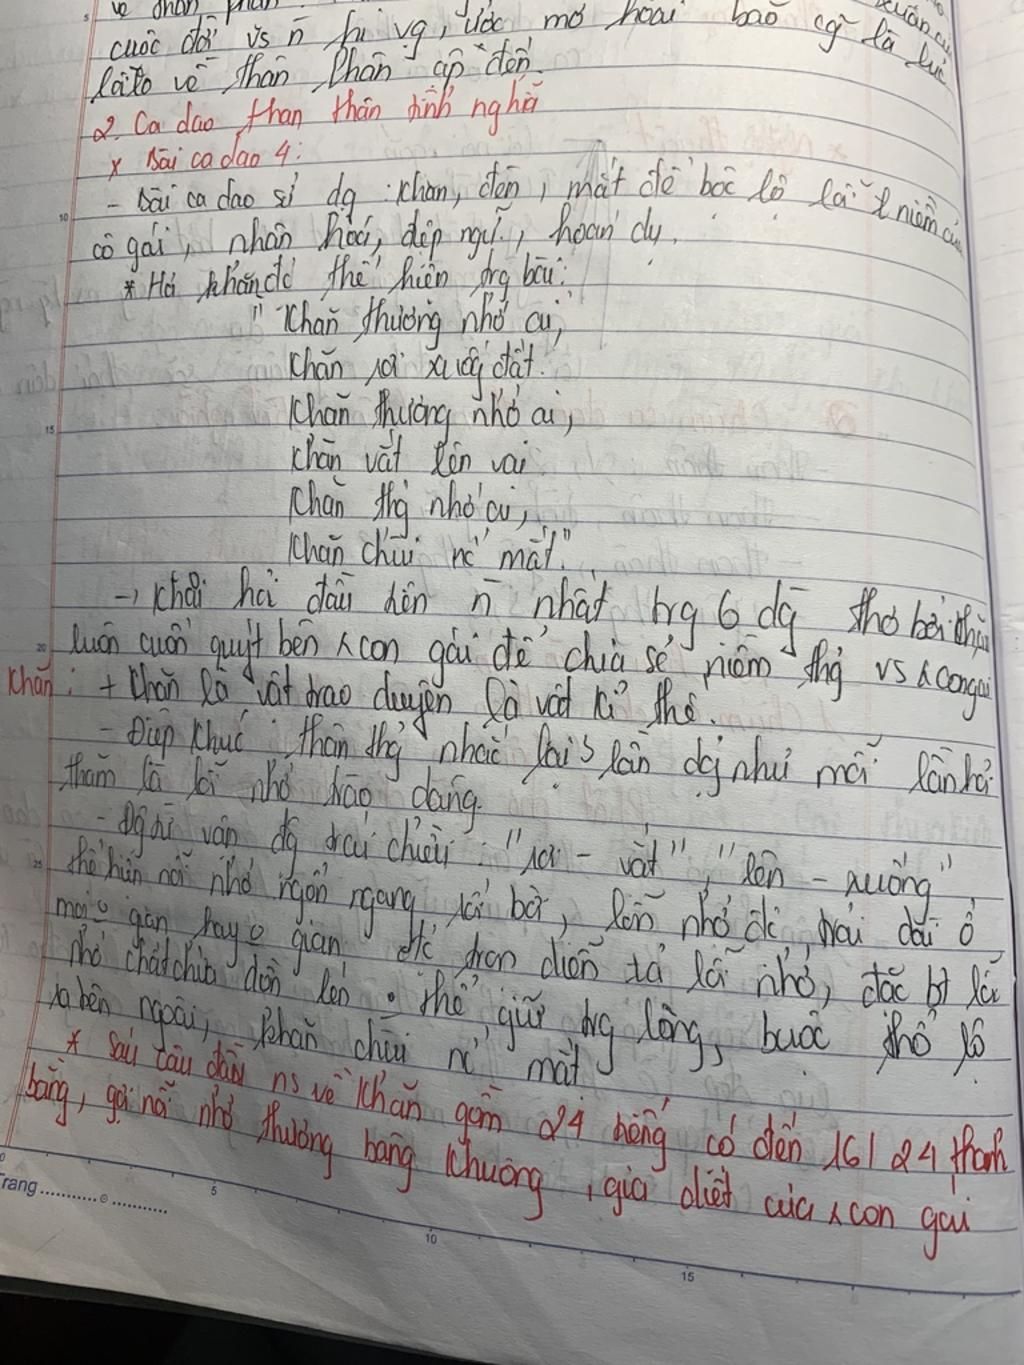 về thân phận
cuộc đời vs n̄ hi vg, ước mơ hoài bão cg̃ là lúc
về thân phận ập đến.
2. Ca dao than thân tình nghĩa
x Bài ca dao 4:
- Bài ca dao sử dg : khăn, đèn, mắt để bộc lộ niềm
cô gái, nhân hoá, điệp ngữ, hoán dụ.
* H/ả khăn đc thể hiện trg bài:
" Khăn thương nhớ ai,
Khăn rơi xuống đất.
Khăn thương nhớ ai,
Khăn vắt lên vai
Khăn thg nhớ ai,
Khăn chùi nc mắt".
-> Khăn hỏi đầu tiên n̄ nhất trg 6 dg̀ thơ bởi
luôn cuốn quýt bên con gái để chia sẻ niềm thg vs con gái
Khăn: + Khăn là vật trao duyên là vật kỉ
- Điệp khúc nhắc lại 3 lần dg như mỗi lần hỏi
thăm là nhớ trào dâng.
- Đgtừ vận đg trái chiều : "rơi - vắt", "lên - xuống"
thể hiện nỗi nhớ ngổn ngang, bời, nhớ trải dài ở
mọi gian hay gian diễn tả nhớ, đặc bt
nhớ chất chứa dồn nén thể giữ trg lòng, buộc thổ lộ
ra bên ngoài, khăn chùi nc mắt
* Sáu câu đầu ns về Khăn gồm 24 tiếng, có đến 16/24 thanh
bằng, gợi nỗi nhớ thương bâng khuâng, da diết của con gái
Trang
5
10
15